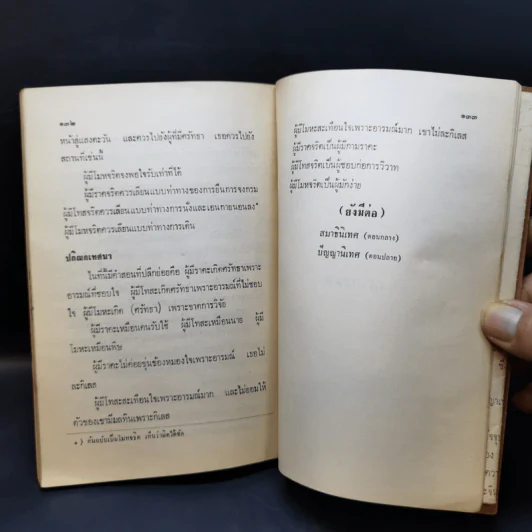 ๑๓๒
หน้าสู่แสงตะวัน และควรไปยังผู้ที่มีศรัทธา เธอควรไปยัง
สถานที่เช่นนี้
ผู้มีโมหจริตจงพอใจรับเท่าที่ได้
ผู้มีราคจริตควรเลียนแบบท่าทางของการยืนการจงกรม
ผู้มีโทสจริตควรเลียนแบบท่าทางการนั่งและเอนกายนอนลง*
ผู้มีโมหจริตควรเลียนแบบท่าทางการเดิน
ปกิณกเทศนา
ในที่นี้มีคำสอนที่ปลีกย่อยคือ ผู้มีราคะเกิดศรัทธาเพราะ
อารมณ์ที่ชอบใจ ผู้มีโทสะเกิดศรัทธาเพราะอารมณ์ที่ไม่ชอบ
ใจ ผู้มีโมหะเกิด (ศรัทธา) เพราะขาดการวิจัย
ผู้มีราคะเหมือนคนรับใช้ ผู้มีโทสะเหมือนนาย ผู้มี
โมหะเหมือนพิษ
ผู้มีราคะไม่ค่อยขุ่นข้องหมองใจเพราะอารมณ์ เธอไม่
ละกิเลส
ผู้มีโทสะสะเทือนใจเพราะอารมณ์มาก และไม่ยอมให้
ตัวของเขามีมลทินเพราะกิเลส
*) ต้นฉบับเป็นโมหจริต เห็นว่าผิดได้ชัด
๑๓๓
ผู้มีโมหะสะเทือนใจเพราะอารมณ์มาก เขาไม่ละกิเลส
ผู้มีราคจริตเป็นผู้มีกามราคะ
ผู้มีโทสจริตเป็นผู้ชอบก่อการวิวาท
ผู้มีโมหจริตเป็นผู้มักง่าย
(ยังมีต่อ)
สมาธินิเทศ (ตอนกลาง)
ปัญญานิเทศ (ตอนปลาย)